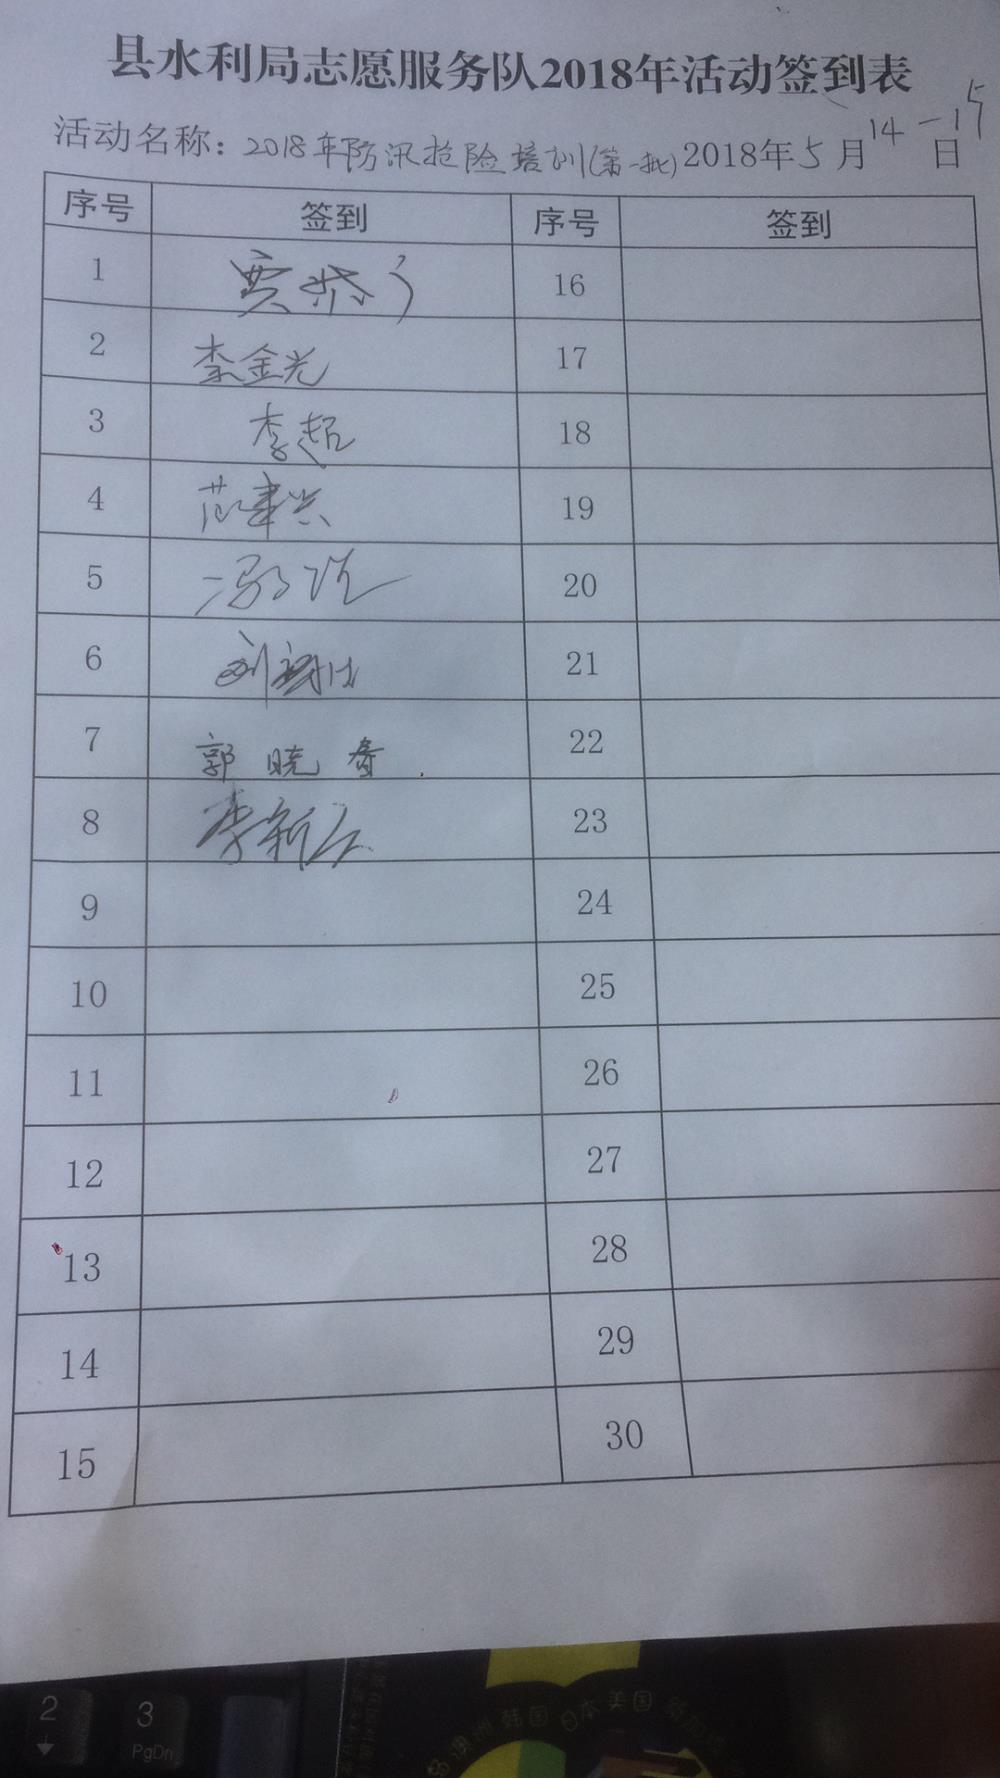 县水利局志愿服务队2018年活动签到表
活动名称：2018年防汛抢险培训(第一批) 2018年5月14-15日
序号 签到 序号 签到
1 16
2 李金光 17
3 李超 18
4 范建兴 19
5 冯 20
6 刘 21
7 郭晓奇 22
8 李新 23
9 24
10 25
11 26
12 27
13 28
14 29
15 30
2 3
PgDn
澳洲 韩国 日本 美国 新加坡